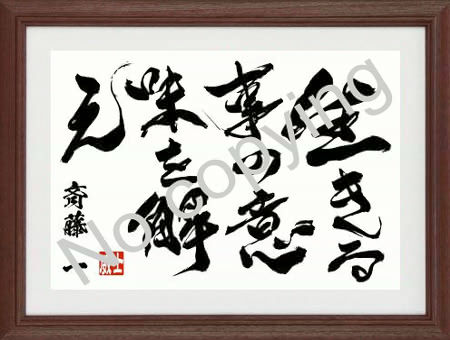 生きる
事の意
味を解
え
斎藤一
No copying